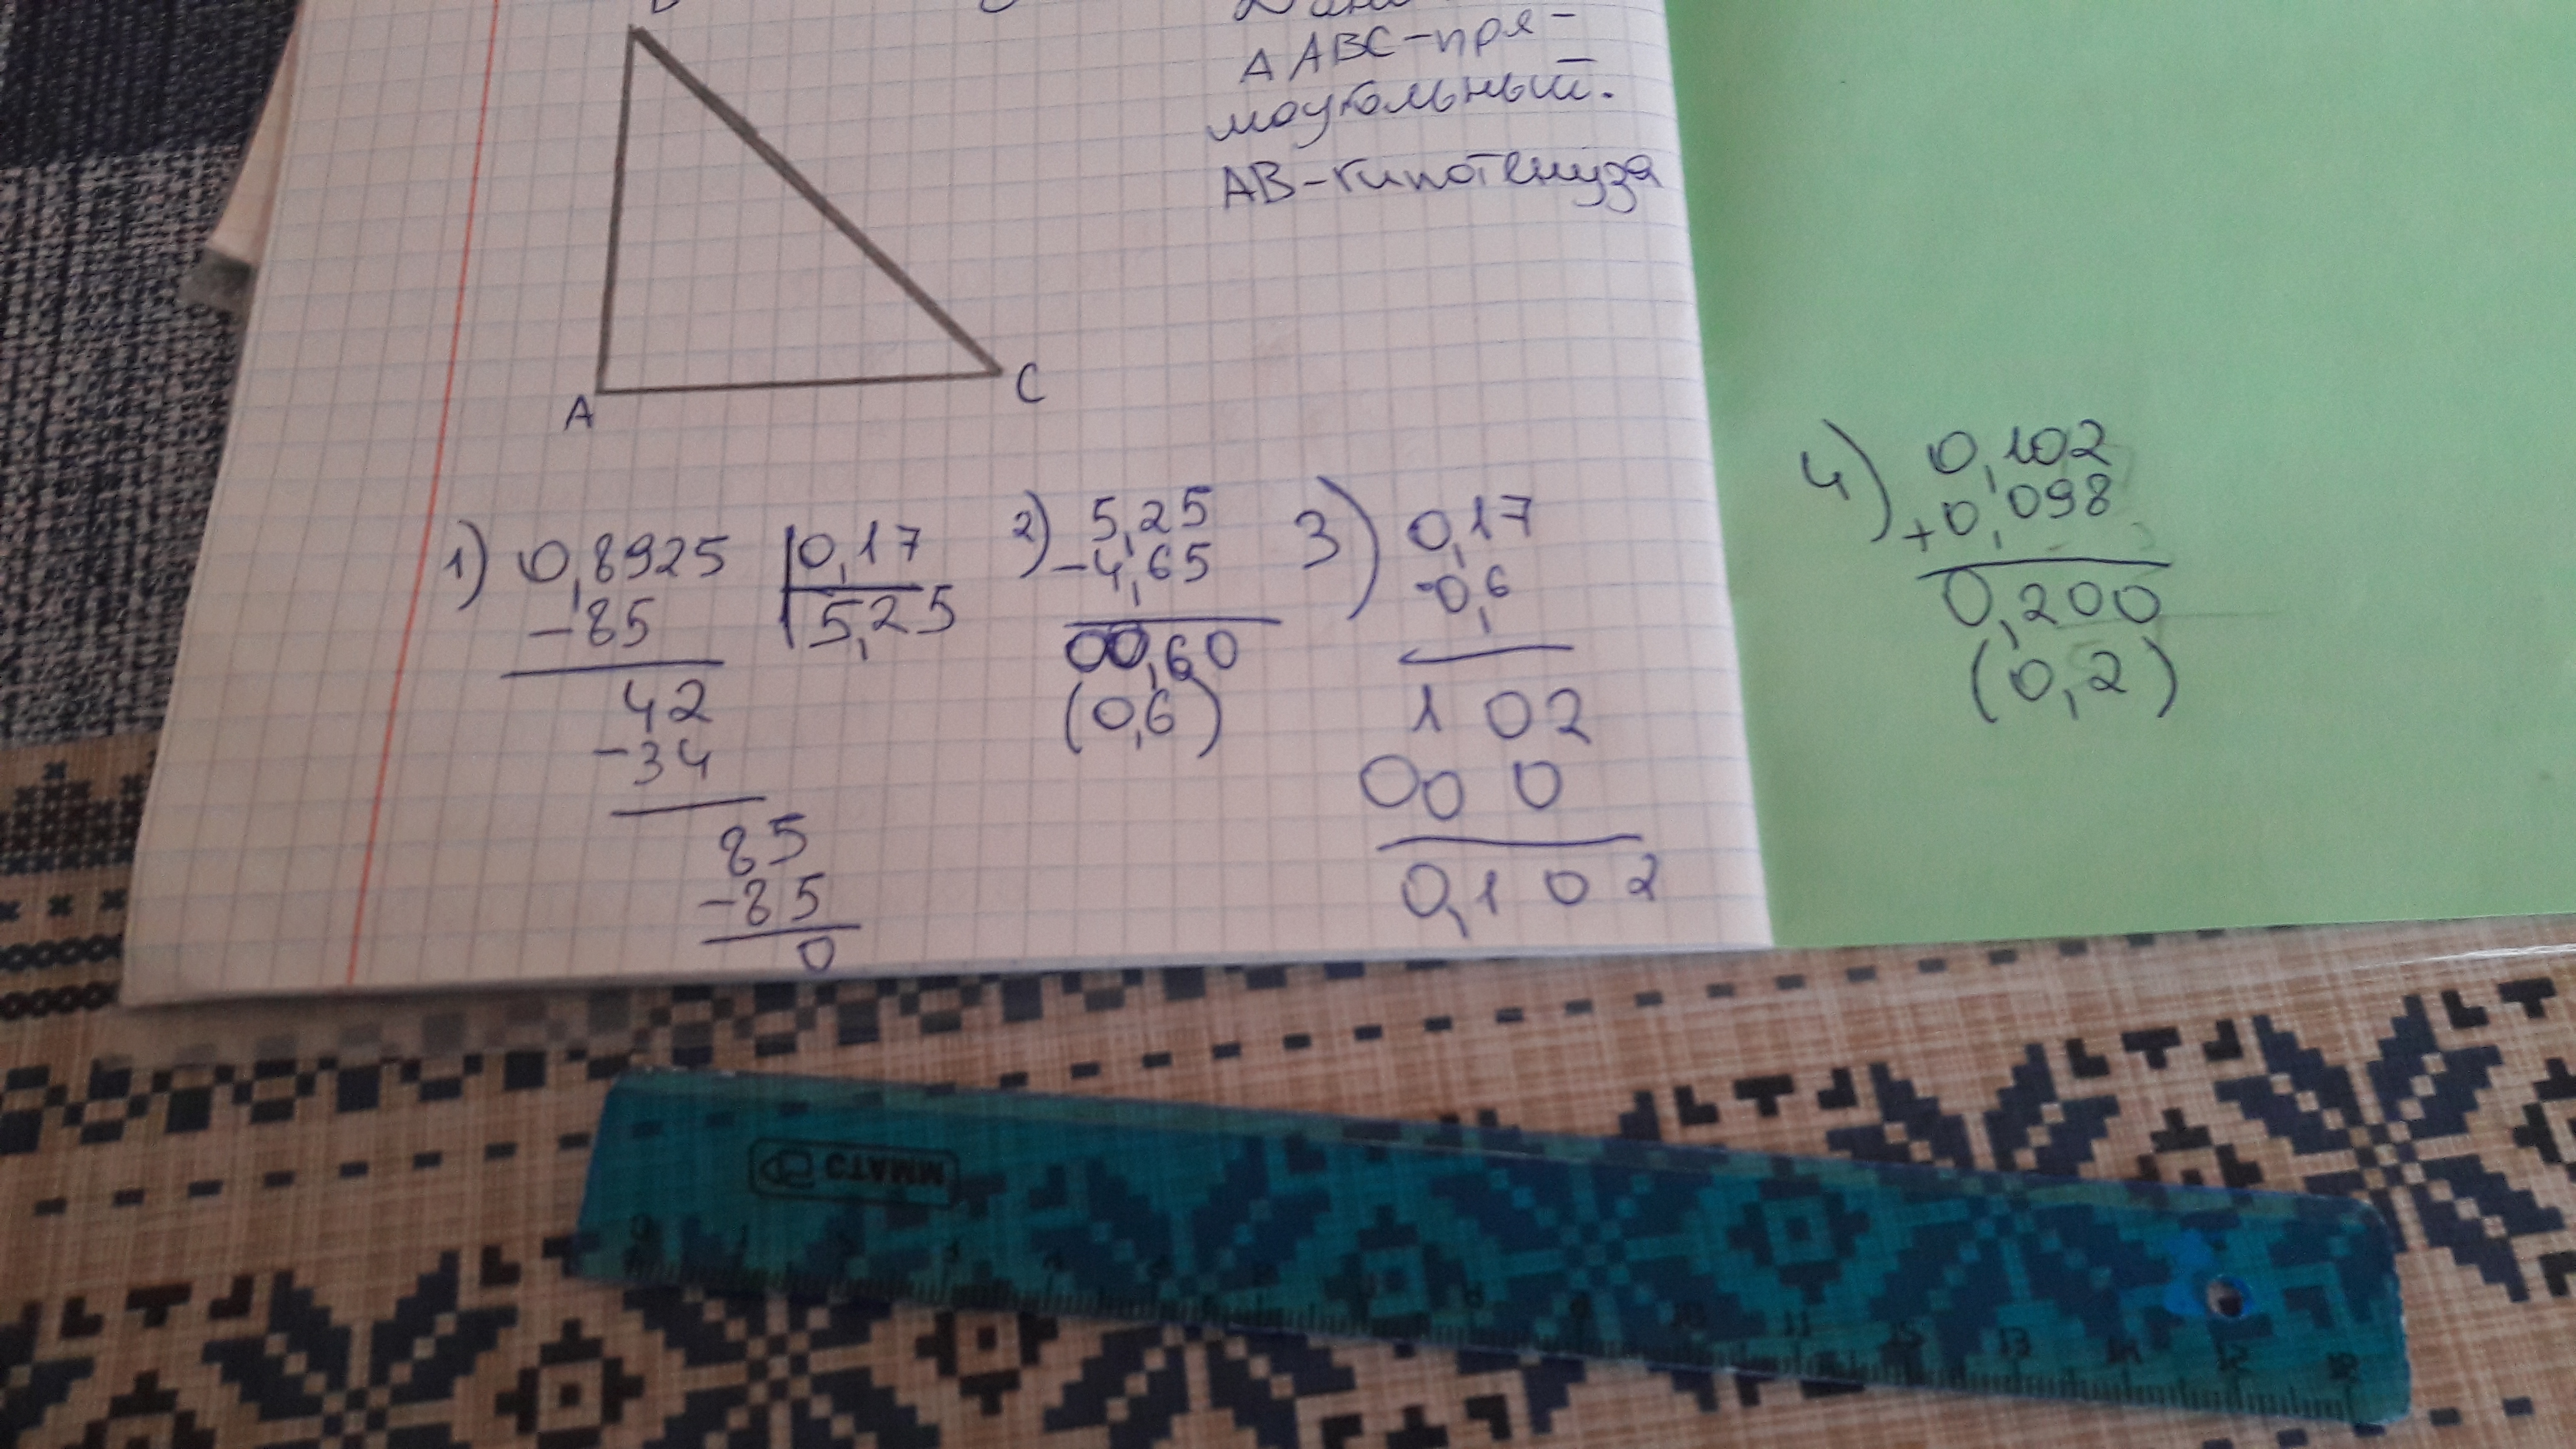 Δ ABC-пря-
моугольный.
AB-гипотенуза
A
C
1) 0,8925 | 0,17
-85 | 5,25
42
-34
85
-85
0
2) 5,25
-4,65
00,60
(0,6)
3) 0,17
·0,6
1 02
00 0
0,1 0 2
4) 0,102
+0,098
0,200
(0,2)
ММАТО
0 1
11
13